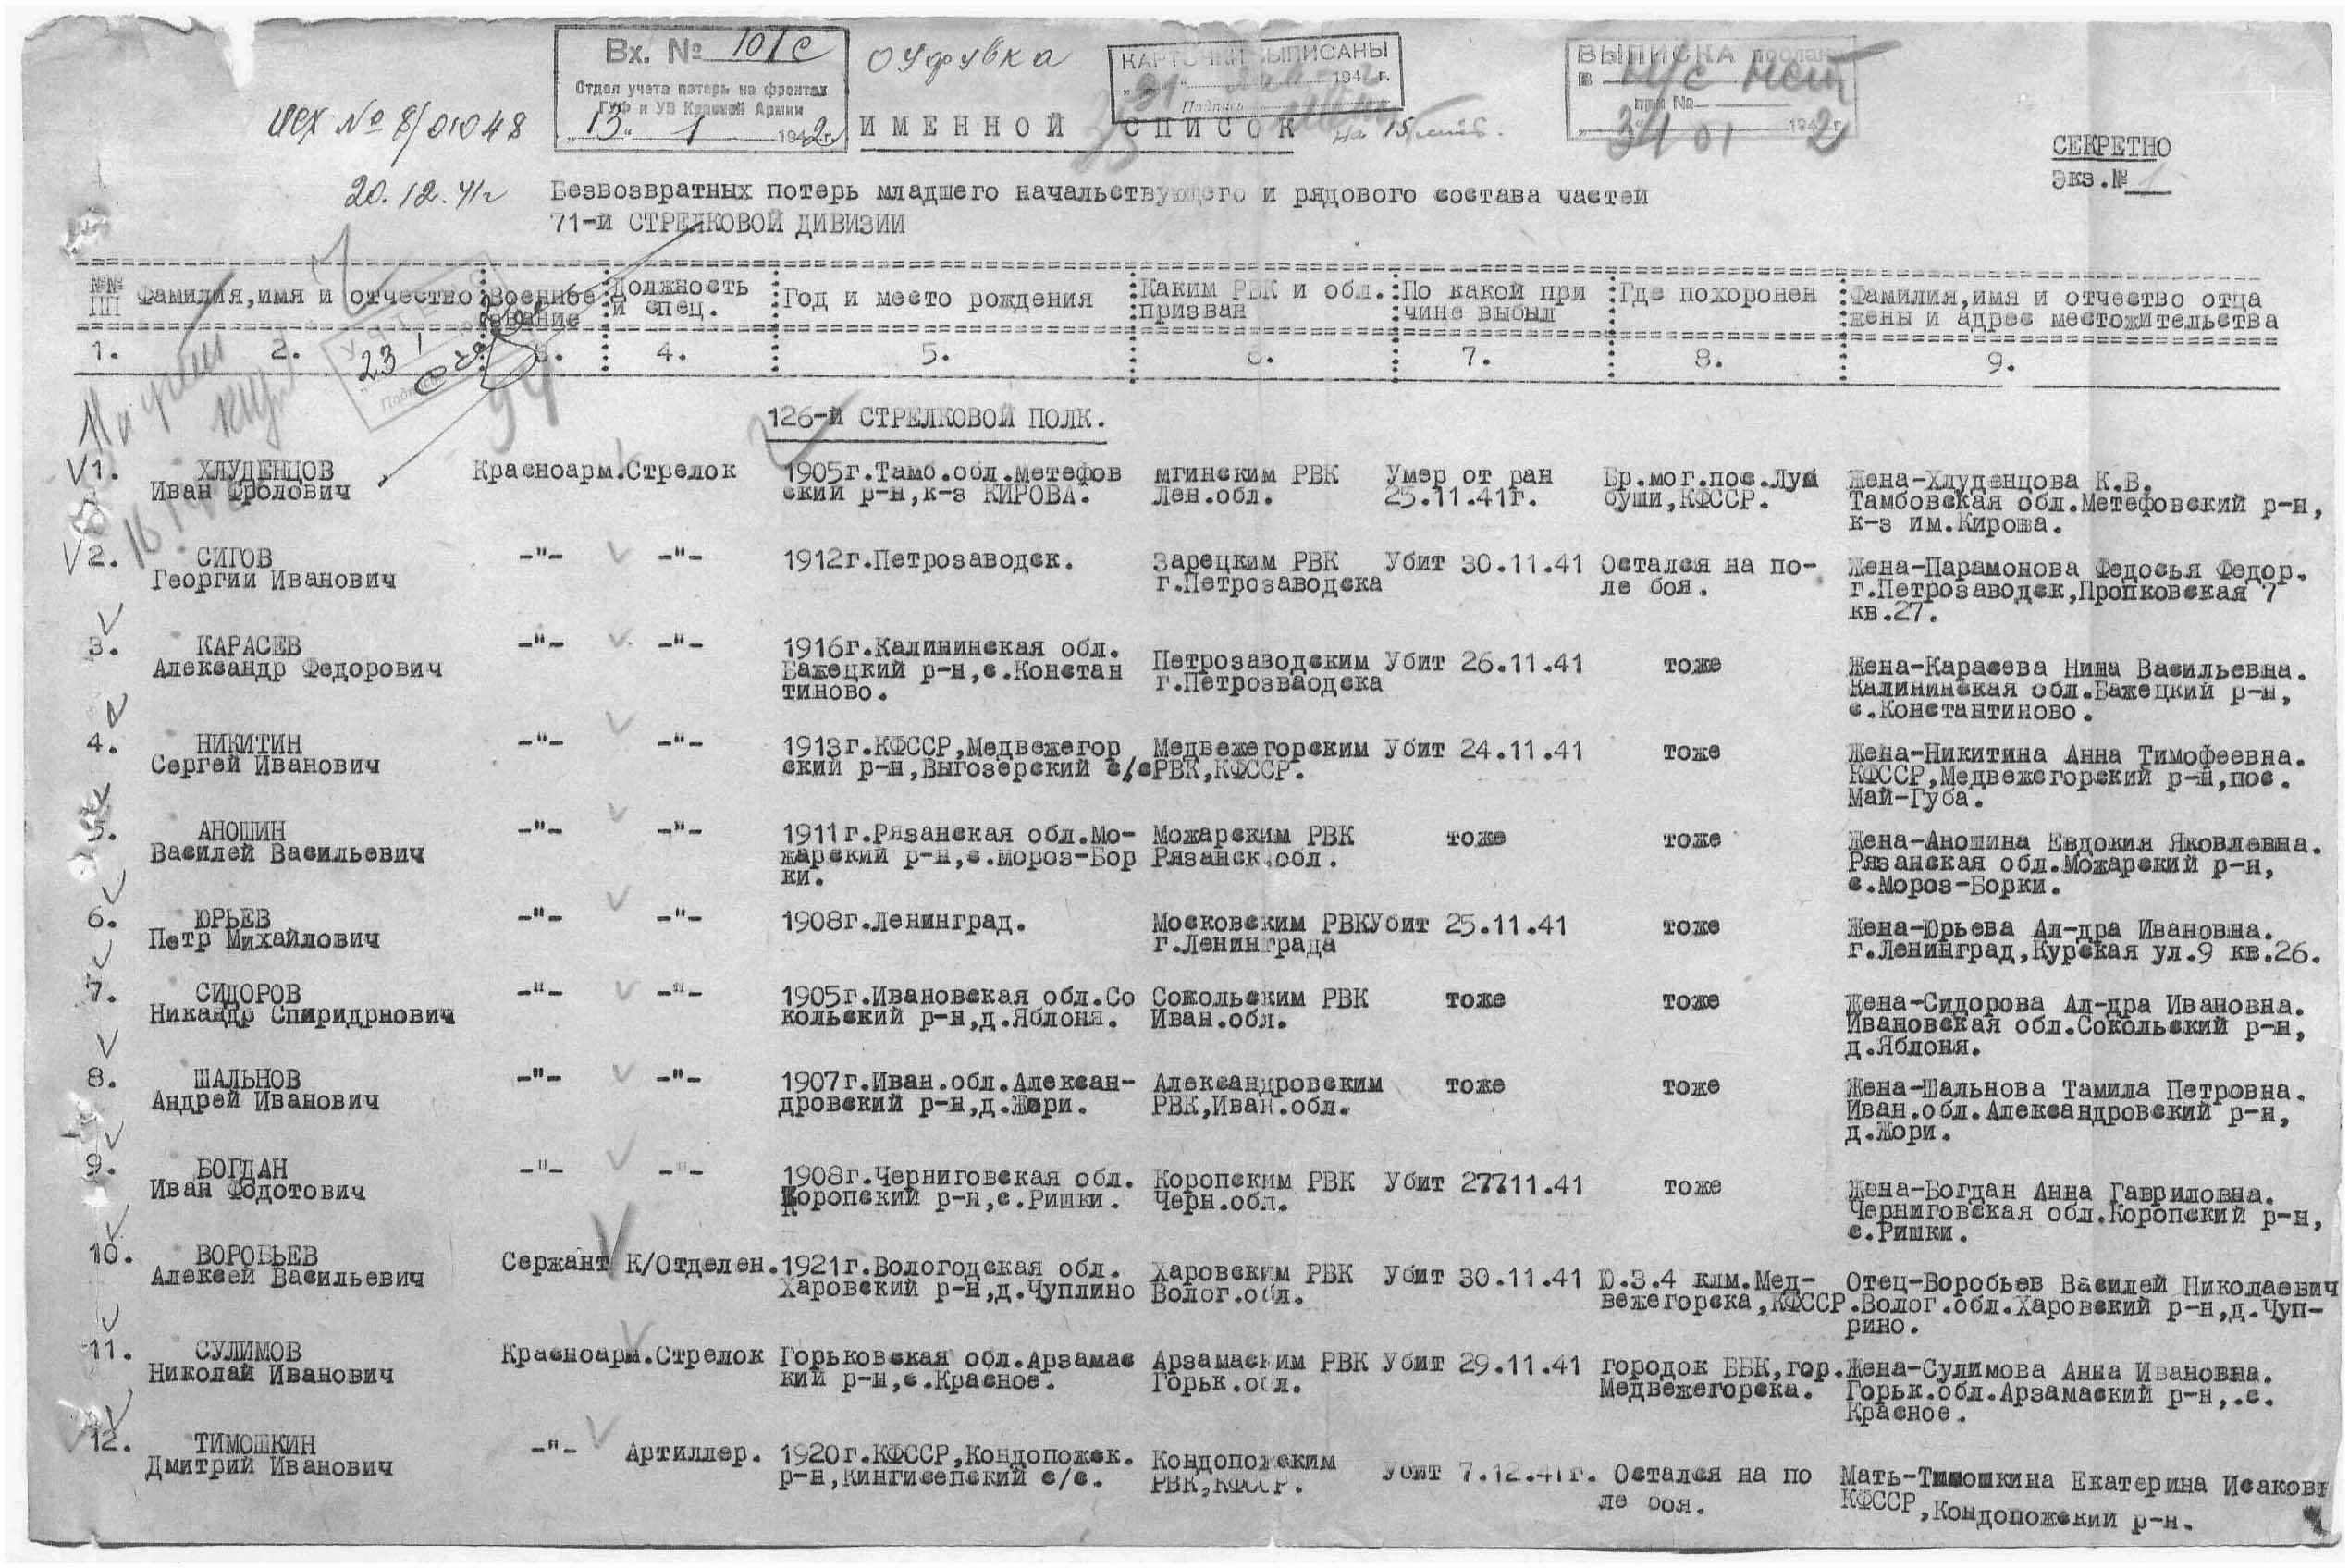 Вх. № 101с
Отдел учета потерь на фронтах
ГУФ и УВ Красной Армии
"13" 1 1942г.
КАРТОЧКИ ВЫПИСАНЫ
"31" 194 г.
Подпись
на 15 листов.
ВЫПИСКА послана
в н/с
при №
34 01 1942 г.
исх № 8/01048
20.12.41г
СЕКРЕТНО
Экз.№ 1
ИМЕННОЙ СПИСОК
Безвозвратных потерь младшего начальствующего и рядового состава частей
71-й СТРЕЛКОВОЙ ДИВИЗИИ
№№ ПП Фамилия,имя и отчество Военное звание Должность и спец. Год и место рождения Каким РВК и обл. призван По какой при чине выбыл Где похоронен Фамилия,имя и отчество отца жены и адрес местожительства
1. 2. 3. 4. 5. 6. 7. 8. 9.
23 1
94
126-й СТРЕЛКОВОЙ ПОЛК.
1. ХЛУДЕНЦОВ Красноарм.Стрелок 1905г.Тамб.обл.Метефов мгинским РВК Умер от ран Бр.мог.пос.Лум Жена-Хлуденцова К.В.
Иван Фролович ский р-н,к-з КИРОВА. Лен.обл. 25.11.41г. буши,КФССР. Тамбовская обл.Метефовский р-н,
к-з им.Кироша.
2. СИГОВ -"- -"- 1912г.Петрозаводск. Зарецким РВК Убит 30.11.41 Остался на по- Жена-Парамонова Федосья Федор.
Георгий Иванович г.Петрозаводска ле боя. г.Петрозаводск,Пропковская 7
кв.27.
3. КАРАСЕВ -"- -"- 1916г.Калининская обл. Петрозаводским Убит 26.11.41 тоже Жена-Карасева Нина Васильевна.
Александр Федорович Бажецкий р-н,с.Констан г.Петрозваодска Калининская обл.Бажецкий р-н,
тиново. с.Константиново.
4. НИКИТИН -"- -"- 1913г.КФССР,Медвежегор Медвежегорским Убит 24.11.41 тоже Жена-Никитина Анна Тимофеевна.
Сергей Иванович ский р-н,Выгозерский с/с РВК,КФССР. КФССР,Медвежегорский р-н,пос.
Май-Губа.
5. АНОШИН -"- -"- 1911г.Рязанская обл.Мо- Можарским РВК тоже тоже Жена-Аношина Евдокия Яковлевна.
Василей Васильевич жарский р-н,с.мороз-Бор Рязанск.обл. Рязанская обл.Можарский р-н,
ки. с.Мороз-Борки.
6. ЮРЬЕВ -"- -"- 1908г.Ленинград. Московским РВК Убит 25.11.41 тоже Жена-Юрьева Ал-дра Ивановна.
Петр Михайлович г.Ленинграда г.Ленинград,Курская ул.9 кв.26.
7. СИДОРОВ -"- -"- 1905г.Ивановская обл.Со Сокольским РВК тоже тоже Жена-Сидорова Ал-дра Ивановна.
Никандр Спиридрнович кольский р-н,д.Яблоня. Иван.обл. Ивановская обл.Сокольский р-н,
д.Яблоня.
8. ШАЛЬНОВ -"- -"- 1907г.Иван.обл.Алексан- Александровским тоже тоже Жена-Шальнова Тамила Петровна.
Андрей Иванович дровский р-н,д.Жори. РВК,Иван.обл. Иван.обл.Александровский р-н,
д.Жори.
9. БОГДАН -"- -"- 1908г.Черниговская обл. Коропским РВК Убит 27711.41 тоже Жена-Богдан Анна Гавриловна.
Иван Фодотович Коропский р-н,с.Ришки. Черн.обл. Черниговская обл.Коропский р-н,
с.Ришки.
10. ВОРОБЬЕВ Сержант К/Отделен. 1921г.Вологодская обл. Харовским РВК Убит 30.11.41 Ю.З.4 клм.Мед- Отец-Воробьев Василей Николаевич
Алексей Васильевич Харовский р-н,д.Чуплино Волог.обл. вежегорска,КФССР. Волог.обл.Харовский р-н,д.Чуп-
рино.
11. СУЛИМОВ Красноарм.Стрелок Горьковская обл.Арзамас Арзамаским РВК Убит 29.11.41 городок ББК,гор. Жена-Сулимова Анна Ивановна.
Николай Иванович кий р-н,с.Красное. Горьк.обл. Медвежегорска. Горьк.обл.Арзамаский р-н,.с.
Красное.
12. ТИМОШКИН -"- Артиллер. 1920г.КФССР,Кондопожск. Кондоподским Убит 7.12.41г. Остался на по Мать-Тимошкина Екатерина Исаковн
Дмитрий Иванович р-н,Кингисепский с/с. РВК,КФССР. ле боя. КФССР,Кондопожский р-н.